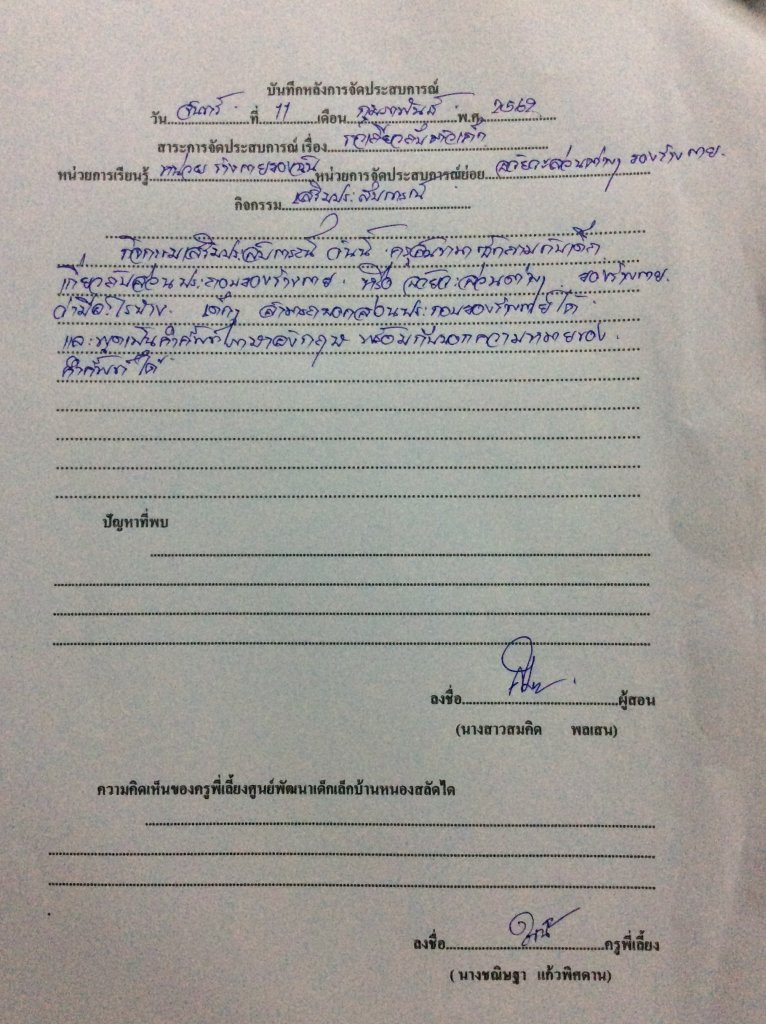 บันทึกหลังการจัดประสบการณ์
วัน จันทร์ ที่ 11 เดือน กุมภาพันธ์ พ.ศ. 2562
สาระการจัดประสบการณ์ เรื่อง เกี่ยวกับตัวเด็ก
หน่วยการเรียนรู้ หน่วย ร่างกายของฉัน หน่วยการจัดประสบการณ์ย่อย อวัยวะส่วนต่างๆ ของร่างกาย
กิจกรรม เสริมประสบการณ์
กิจกรรมเสริมประสบการณ์ วันนี้ ครูสนทนา ซักถามกับเด็ก
เกี่ยวกับส่วนประกอบของร่างกาย หรือ อวัยวะส่วนต่างๆ ของร่างกาย
ว่ามีอะไรบ้าง เด็กๆ สามารถบอกส่วนประกอบของร่างกายได้
และพูดเป็นคำศัพท์ภาษาอังกฤษ พร้อมกับบอกความหมายของ
คำศัพท์ ได้
ปัญหาที่พบ
ลงชื่อ ผู้สอน
(นางสาวสมคิด พลเสน)
ความคิดเห็นของครูพี่เลี้ยงศูนย์พัฒนาเด็กเล็กบ้านหนองสลัดได
ลงชื่อ ครูพี่เลี้ยง
(นางชณิษฐา แก้วพิศดาน)